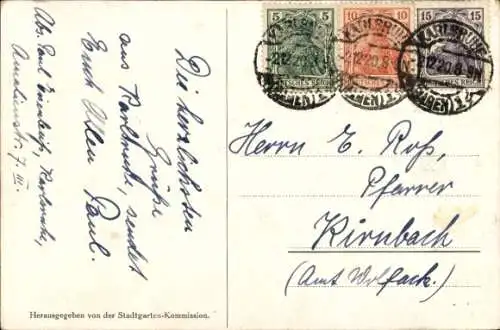 Die herzlichsten
Grüße
aus Karlsruhe, sendet
Euch Allen
Paul.
Abs. Paul Karlsruhe,
Amalienstr. 7 III.
Herausgegeben von der Stadtgarten-Kommission.
5 5
10 10
15 15
DEUTSCHES REICH
KARLSRUHE
2.12.20.8-9V
(BADEN)
Herrn E. Roß,
Pfarrer
Kirnbach
(Amt Wolfach.)